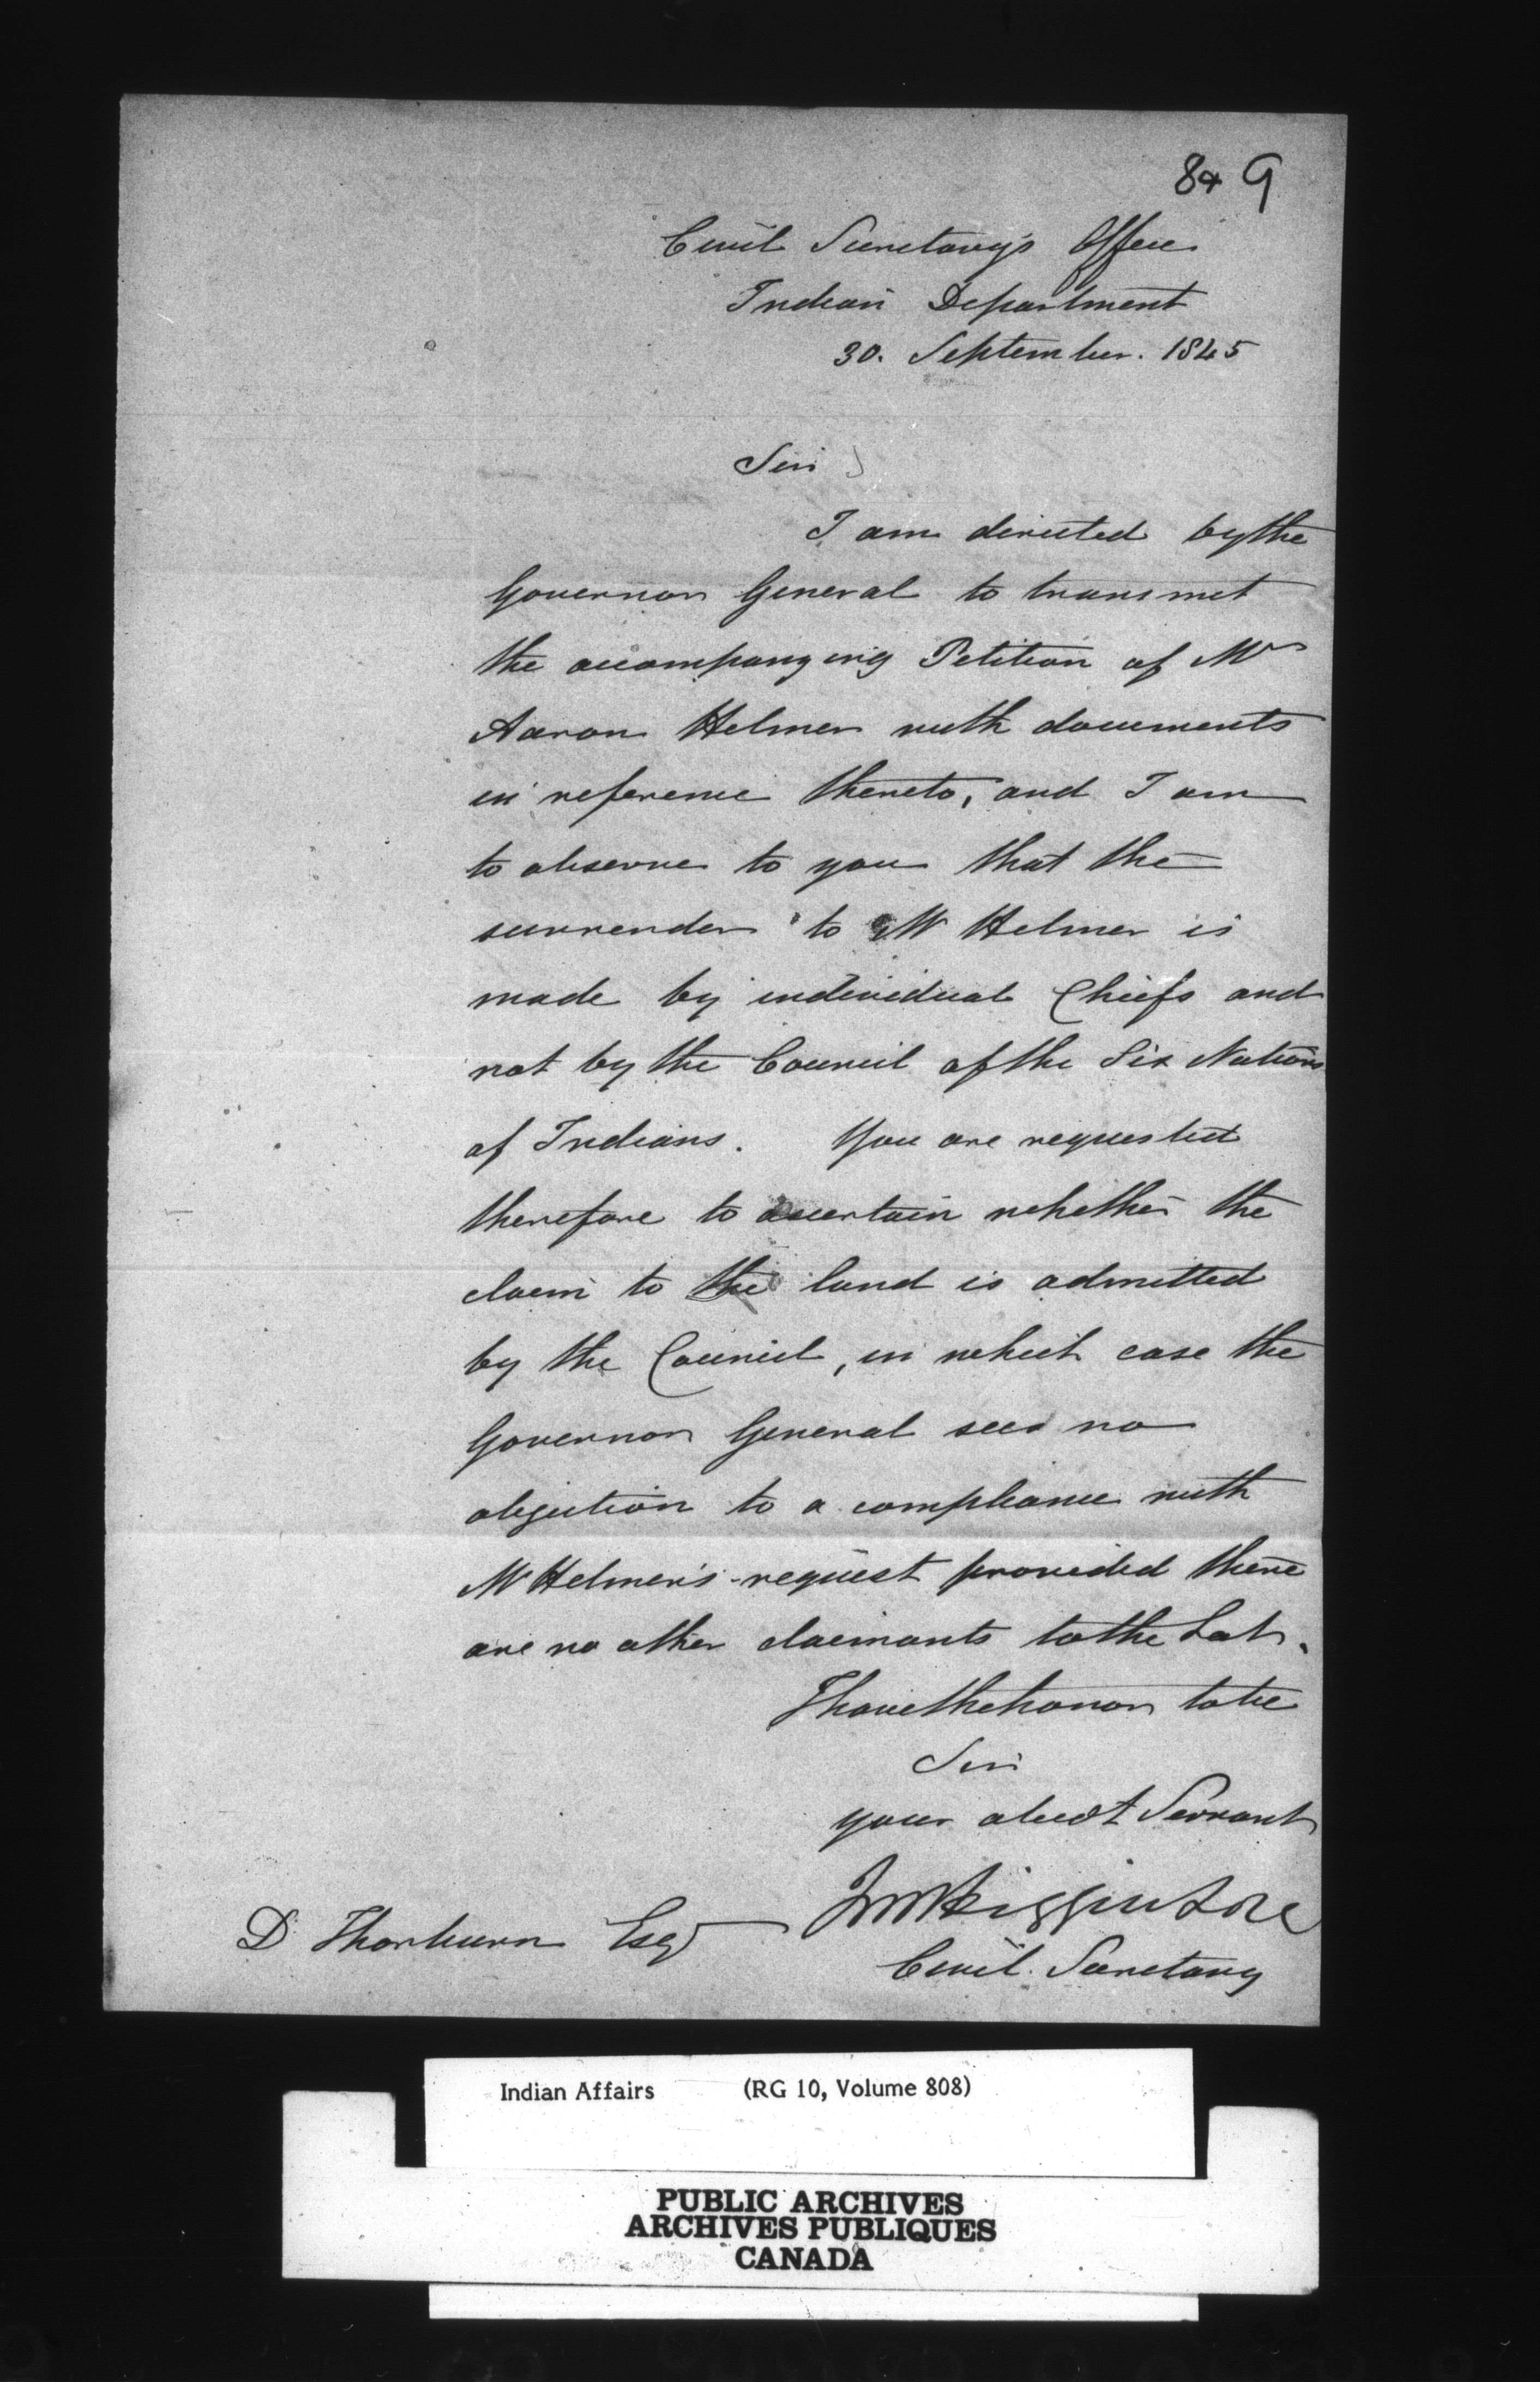 8 & 9
Civil Secretary's Office
Indian Department
30. September. 1845
Sir
I am directed by the
Governor General to transmit
the accompanying Petition of Mr
Aaron Helmer with documents
in reference thereto, and I am
to observe to you that the
surrender to Mr Helmer is
made by individual Chiefs and
not by the Council of the Six Nations
of Indians. You are requested
therefore to ascertain whether the
claim to the land is admitted
by the Council, in which case the
Governor General sees no
objection to a compliance with
Mr Helmer's request provided there
are no other claimants to the Lot.
I have the honor to be
Sir
your obedt Servant
JM Higginson
D Thorburn Esqr
Civil Secretary
Indian Affairs (RG 10, Volume 808)
PUBLIC ARCHIVES
ARCHIVES PUBLIQUES
CANADA